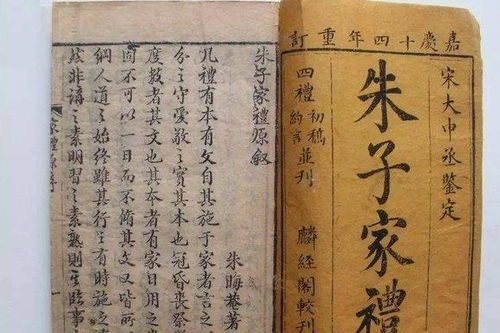 嘉慶十四年重訂
宋大中丞鑒定
朱子家禮
四禮初稿約言並刊
麟經閣較刊
朱子家禮原敘
朱晦菴著
凡禮有本有文自其施于家者言之
分之守愛敬之實其本也冠昏喪祭
度數者其文也其本者有家日用之
固不可以一日而不脩其文又皆所
綱人道之始終雖其行之有時施之
然非講之素明習之素熟則其臨事
家禮原序